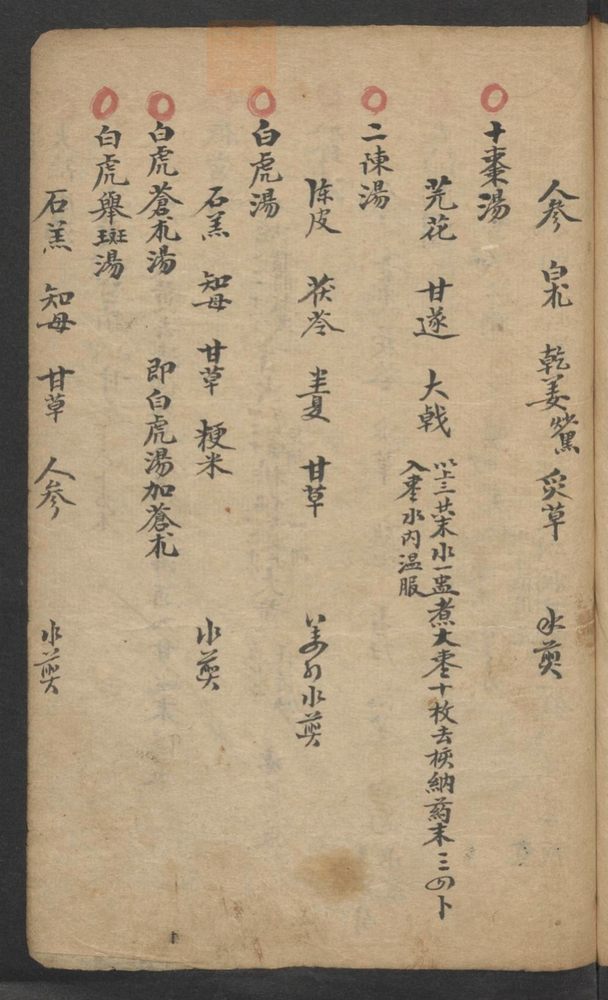 人参 白朮 乾姜 炙草 水煎
十棗湯
芫花 甘遂 大戟
以上三共末水一盅煮大棗十枚去核納药末三四卜
入棗水内温服
二陳湯
陈皮 茯苓 半夏 甘草 姜引水煎
白虎湯
石羔 知母 甘草 粳米 水煎
白虎蒼朮湯 即白虎湯加蒼朮
白虎舉斑湯
石羔 知母 甘草 人参 水煎